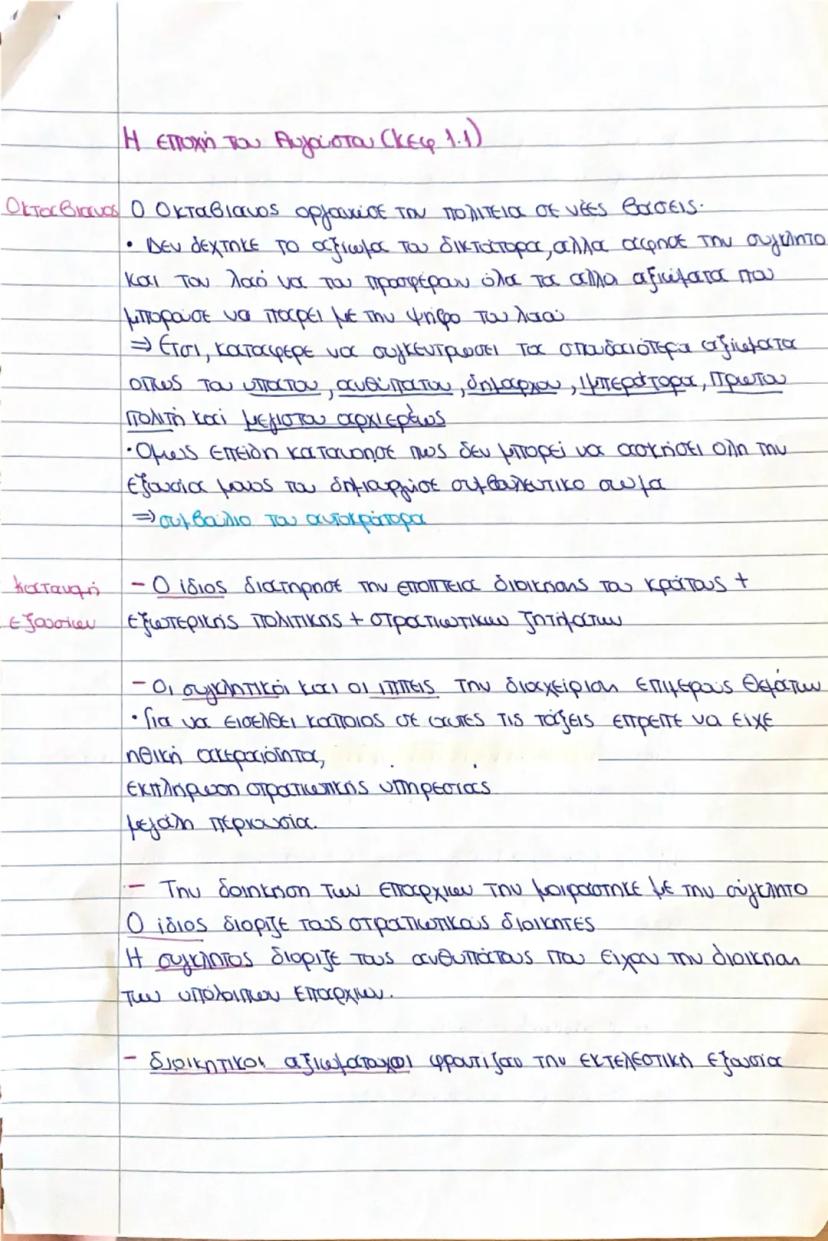 Η εποχή του Αυγούστου (κεφ 1.1)
Οκταβιανος Ο Οκταβιανος οργανωσε την πολιτεια σε νέες βασεις·
• Δεν δεχτηκε το αξιωμα του δικτάτορα, αλλα αφησε την συγκλητο
και τον λαό να του προσφέρουν όλα τα αλλα αξιώματα που
μπορούσε να παρει με την ψήφο του λαού
⇒ Ετσι, καταφερε να συγκεντρωσει τα σπουδαιότερα αξιωματα
οπως του υπατου, ανθύπατου, δημαρχου, ιμπεράτορα, πρωτου
πολιτη και μεγιστου αρχιερέως
• Ομως επειδη κατανοησε πως δεν μπορεί να ασκήσει ολη την
εξουσία μονος του δημιουργησε συμβουλευτικο σωμα
⇒ συμβούλιο του αυτοκράτορα
κατανομή – Ο ίδιος διατηρησε την εποπτεια διοικησης του κράτους +
εξουσιων εξωτερικης πολιτικης + στρατιωτικων ζητηματων
– Οι συγκλητικόι και οι ιππεις την διαχείριση επιμερους θεμάτων
• Για να εισελθει καποιος σε αυτες τις τάξεις επρεπε να ειχε
ηθικη ακεραιότητα,
εκπληρωση στρατιωτικης υπηρεσιας
μεγαλη περιουσία.
– Την διοικηση των επαρχιων την μοιραστηκε με την σύγκλητο
Ο ίδιος διοριζε τους στρατιωτικους διοικητες
Η συγκλητος διοριζε τους ανθυπάτους που ειχαν την διοικηση
των υπόλοιπων επαρχιων.
– διοικητικοι αξιωματουχοι φροντιζαν την εκτελεστική εξουσία